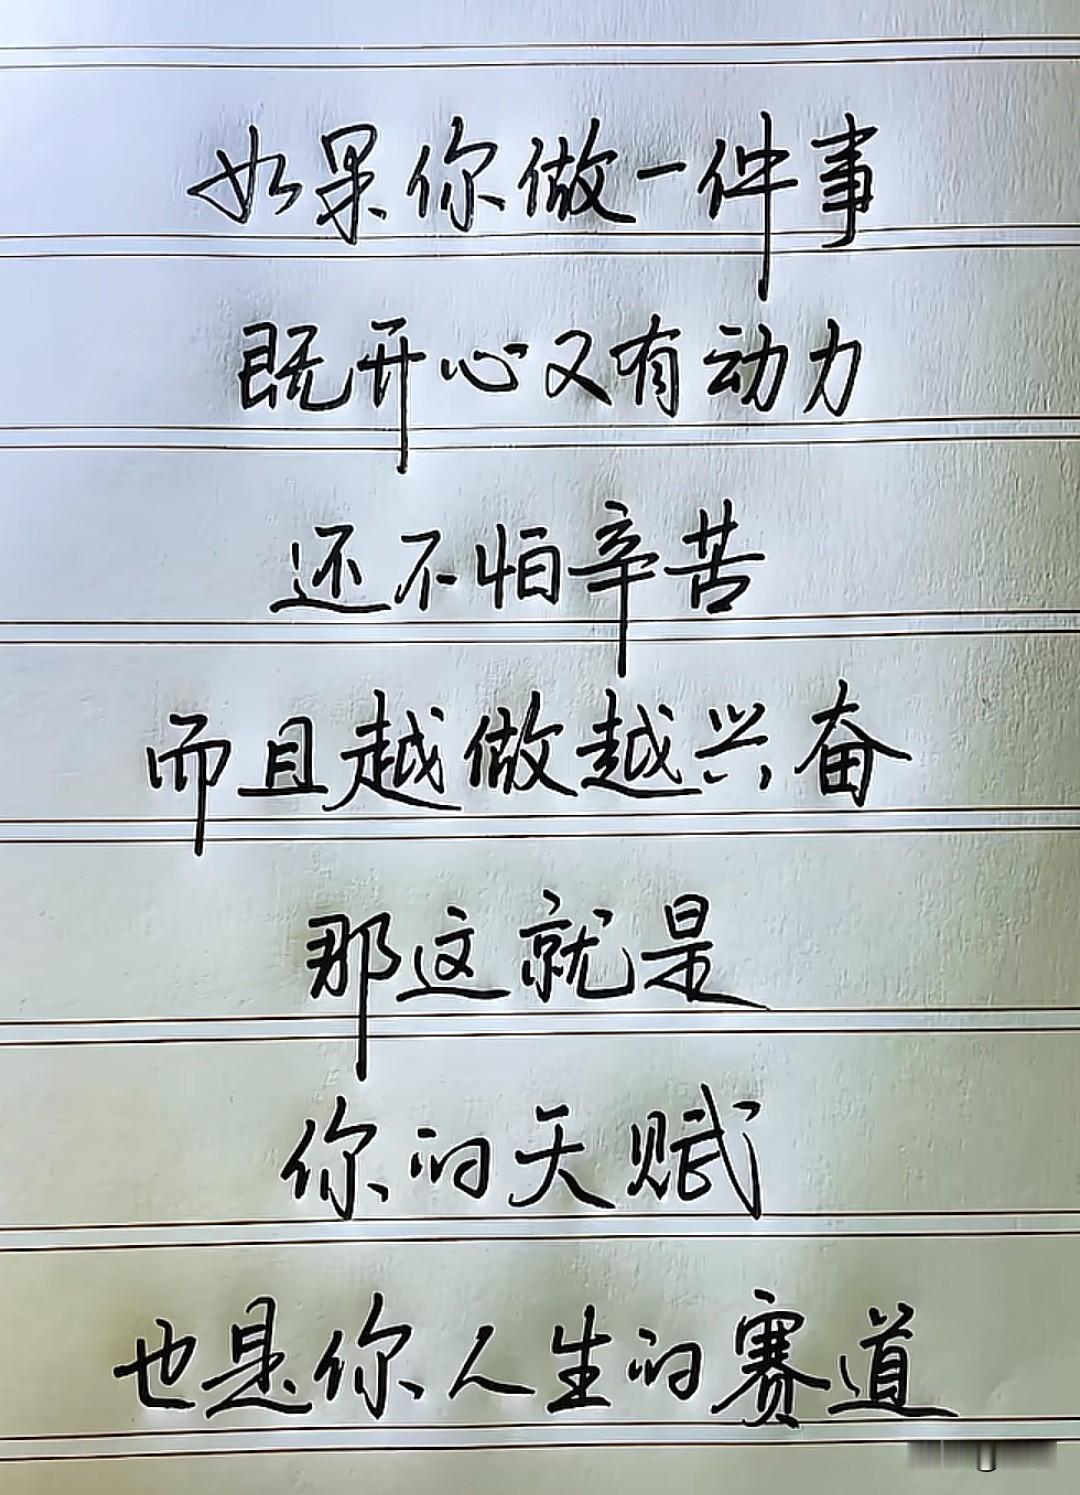 如果你做一件事
既开心又有动力
还不怕辛苦
而且越做越兴奋
那这就是
你的天赋
也是你人生的赛道